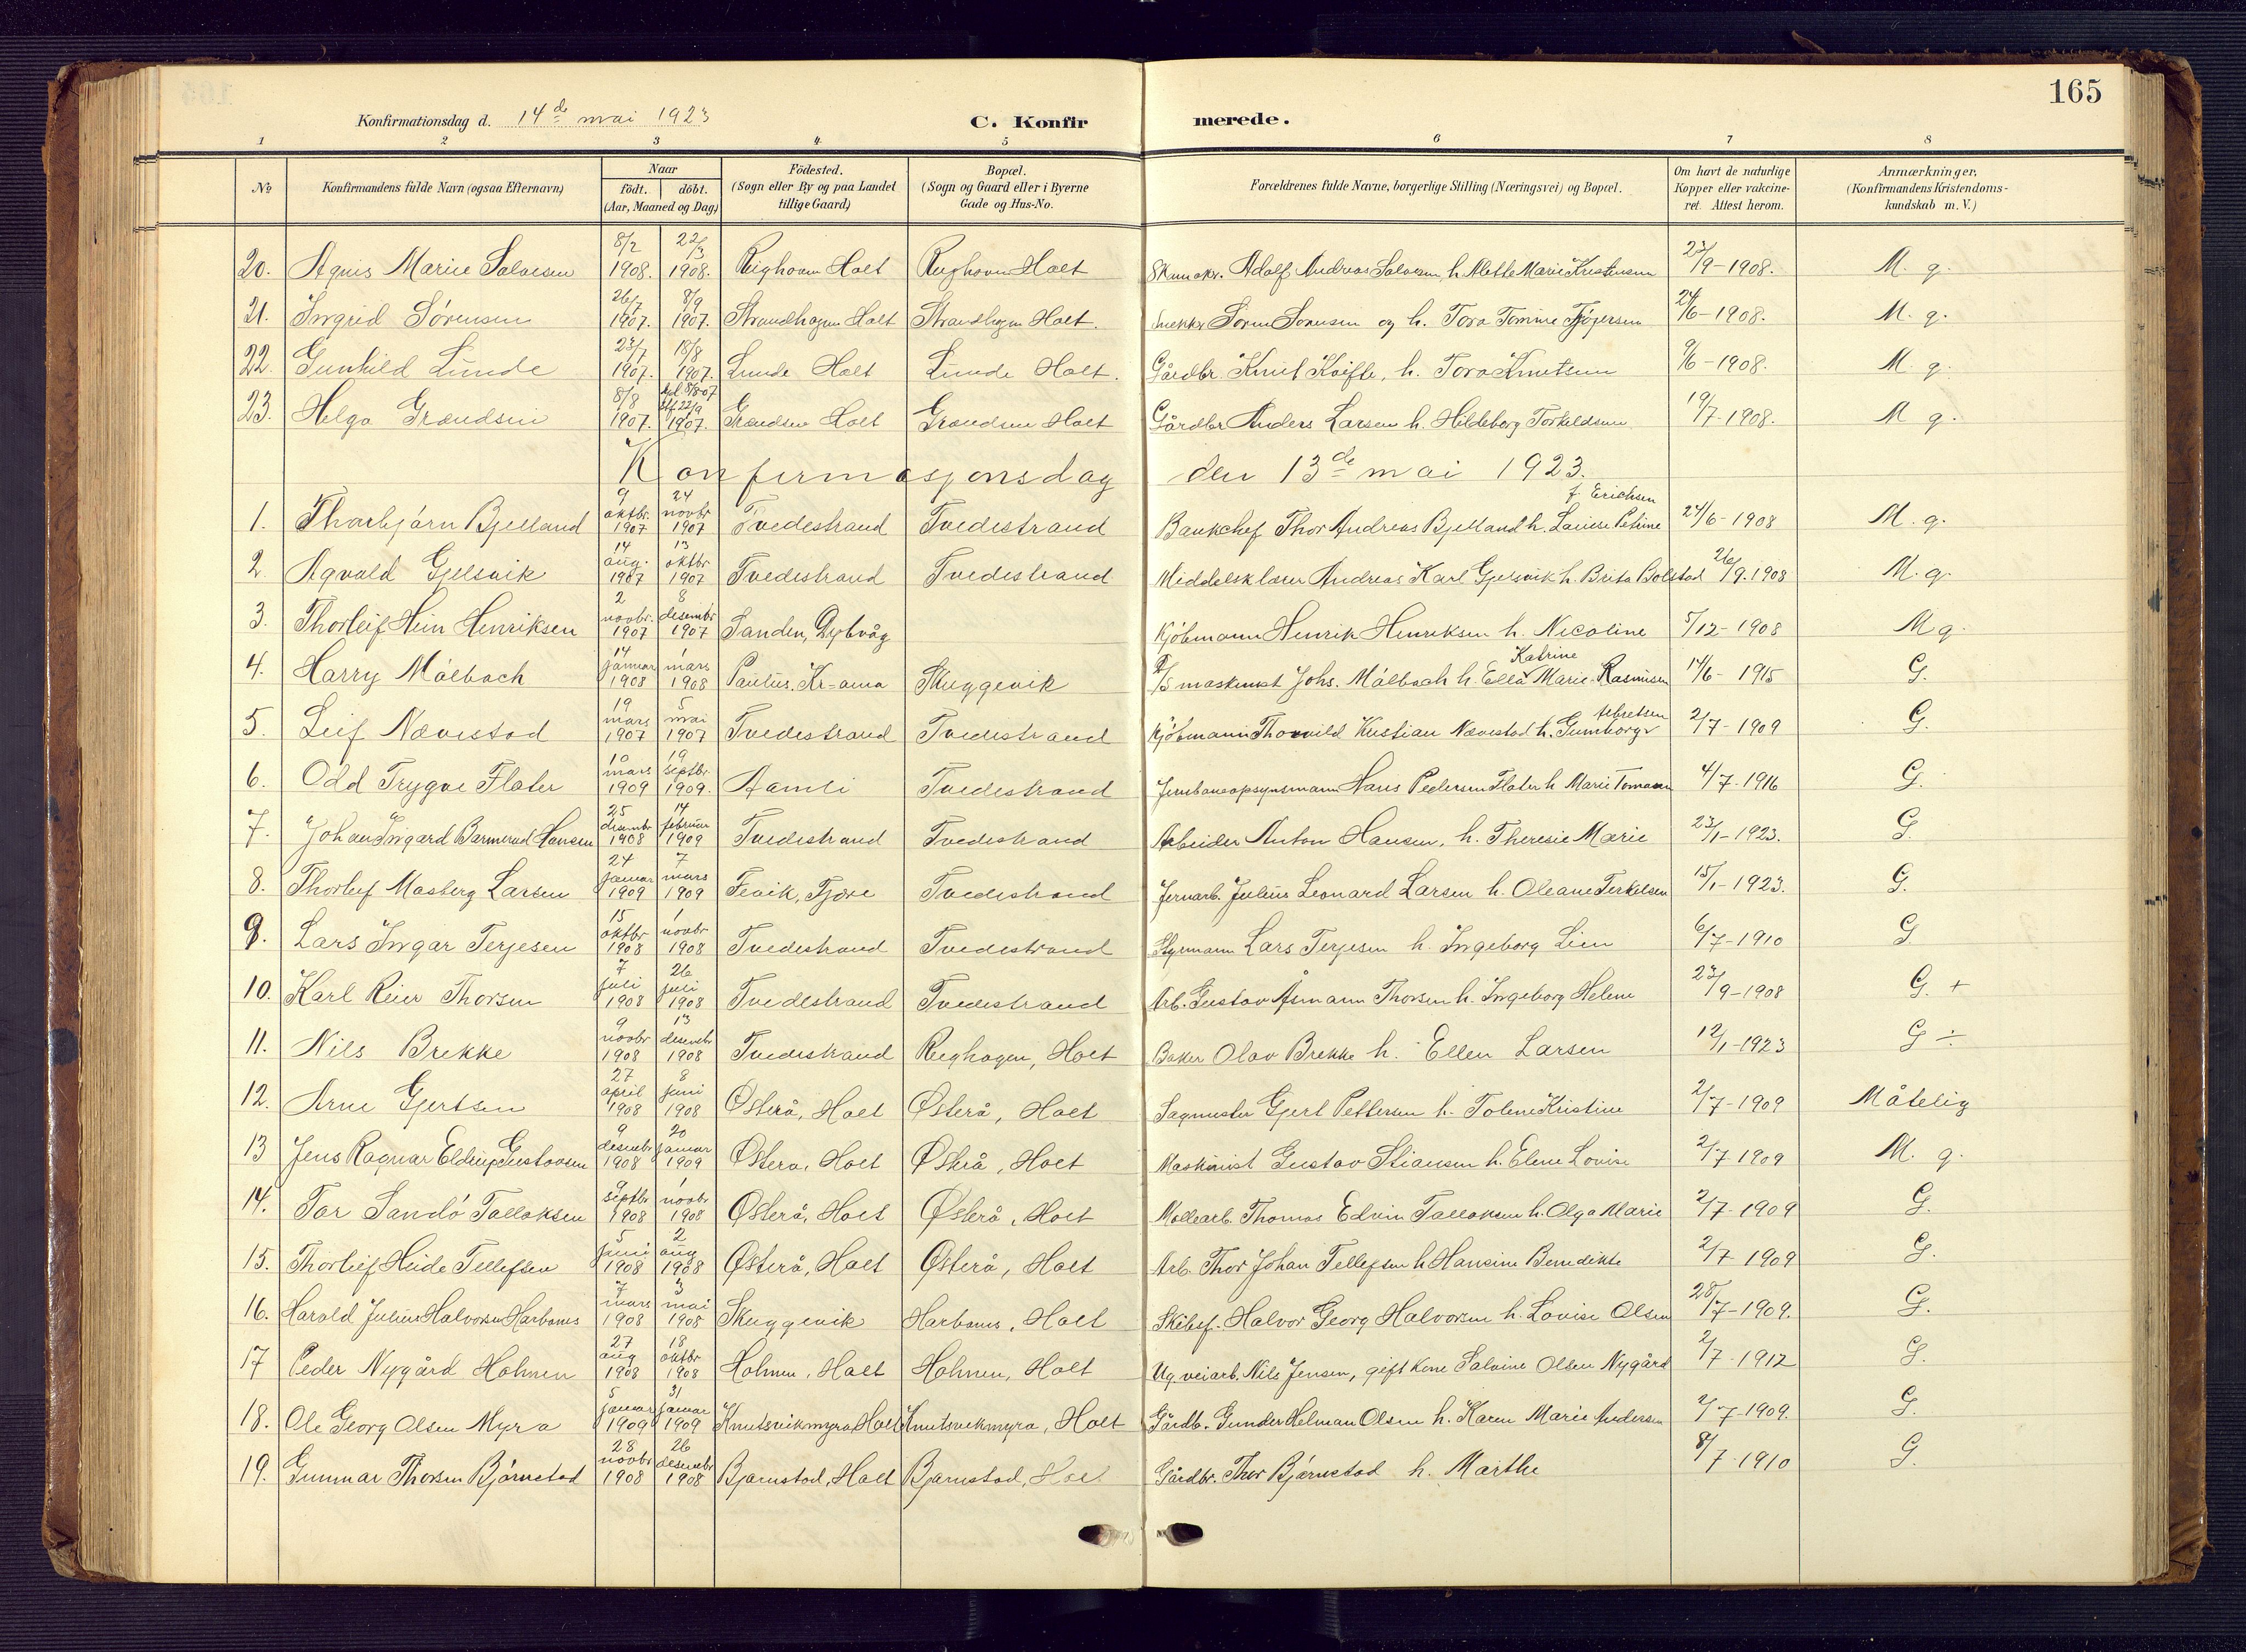 165
Konfirmationsdag d. 14de mai 1923
C. Konfirmerede.
1 2 3 4 5 6 7 8
No
Konfirmandens fulde Navn (ogsaa Efternavn)
Naar
födt. | döbt.
(Aar, Maaned og Dag)
Födested.
(Sogn eller By og paa Landet
tillige Gaard)
Bopæl.
(Sogn og Gaard eller i Byerne
Gade og Hus-No.
Forældrenes fulde Navne, borgerlige Stilling (Næringsvei) og Bopæl.
Om havt de naturlige
Kopper eller vakcine-
ret. Attest herom.
Anmærkninger.
(Konfirmandens Kristendoms-
kundskab m.V.)
20. Agnis Marie Salvesen 8/2 1908. 22/3 1908. Holt Holt Adolf Andreas Salvesen h. Alette Marie Kristensen 23/9-1908. M. g.
21. Ingrid Sörensen 26/7 1907. 8/9 1907. Strandhagen Holt Strandhagen Holt. Sören Sörensen og h. Tora Tomine 24/6-1908. M. g.
22. Gunhild Lunde 23/7 1907. 18/8 1907. Lunde Holt Lunde Holt. Gårdbr. Knut h. Tora Knutsen 9/6-1908. M. g.
23. Helga Grændsen 8/8 1907. 22/9 1907. Grændsen Holt Grændsen Holt Gårdbr Anders Larsen h. Hildeborg Torkeldsen 19/7-1908. M g.
Konfirmasjonsdag den 13de mai 1923.
1. Thorbjörn Bjelland 9 oktbr. 1907 24 novbr 1907 Tvedestrand Tvedestrand Bankchef Thor Andreas Bjelland h. Louise Petrine f. Erichsen 24/6-1908 M. g.
2. Agvald Gjelsvik 14 aug. 1907 13 oktbr 1907 Tvedestrand Tvedestrand Middelsklærer Andreas Karl Gjelsvik h. Brita Bolstad 26/9.1908 M. g.
3. Thorleif Hein Henriksen 2 novbr. 1907 8 desembr 1907 Sanden, Dybvåg Kjöbmann Henrik Henriksen h. Nicoline 5/12-1908 M g.
4. Harry Mölbach 14 januar 1908 1 mars 1908 Paulus. Kr-ania Skuggevik maskinist Johs. Mölbach h. Ella Katrine Marie Rasmusen 14/6-1915 G.
5. Leif Nævestad 19 mars 1907 5 mai 1907 Tvedestrand Tvedestrand Kjöbmann Thorvild Kristian Nævestad h. Gunborg 2/7-1909 G.
6. Odd Trygve Flater 10 mars 1909 19 septbr. 1909. Aamli Tvedestrand Jernbaneopsynsmann Hans Pedersen Flater h Marie 4/7-1916 G.
7. Johan Ingard Barmerud Hansen 25 desembr 1908 14 februar 1909 Tvedestrand Tvedestrand Arbeider Anton Hansen, h. Theresie Marie 23/1-1923. G.
8. Thorleif Masberg Larsen 24 januar 1909 7 mars 1909 Fevik, Fjære Tvedestrand Jernarb. Julius Leonard Larsen h. Oleane Terkelsen 15/1-1923. G.
9. Lars Ingar Terjesen 15 oktbr 1908 1 novbr 1908 Tvedestrand Tvedestrand Styrmann Lars Terjesen h. Ingeborg Lien 6/7-1910 G
10. Karl Reier Thorsen 7 juli 1908 26 juli 1908 Tvedestrand Tvedestrand Arb. Gustav Åsmann Thorsen h. Ingeborg Helene 23/9-1908 G. +
11. Nils Brekke 9 novbr 1908 13 desembr 1908 Tvedestrand Holt Baker Olav Brekke h. Ellen Larsen 12/1-1923 G ÷
12. Arne Gjertsen 27 april 1908 8 juni 1908 Østerå, Holt Østerå, Holt Sagmester Gjert Pettersen h. Tolene Kristine 2/7-1909 Måtelig
13 Jens Ragnar Elding Gustavsen 9 desembr 1908 20 januar 1909 Østerå, Holt Østerå, Holt Maskinist Gustav Stiansen h. Elene Lovise 2/7-1909 M. g.
14. Tor Sandö Tallaksen 9 septbr 1908 1 novbr 1908 Østerå, Holt Østerå, Holt Mollearb. Thomas Edvin Tallaksen h. Olga Marie 2/7-1909 G.
15. Thorleif Heide Tellefsen 5 juni 1908 2 aug 1908 Østerå, Holt Østerå, Holt Arb. Thor Johan Tellefsen h. Hansine Benedikte 2/7 1909 G.
16. Harald Julius Halvorsen Harboms 7 mars 1908 3 mai 1908 Skuggevik Harboms, Holt Skibsf. Halvor Georg Halvorsen h. Lovise Olsen 28/7-1909. G.
17 Peder Nygård Holmen 27 aug 1908 18 oktbr 1908 Holmen, Holt Holmen, Holt Ug. veiarb. Nils Jensen, gift kone Salvine Olsen Nygård 2/7-1912 G.
18. Ole Georg Olsen Myra 5 januar 1909 31 januar 1909 Knutsvikmyra, Holt Knutsvikmyra, Holt Gårdb. Gunder Helman Olsen h. Karen Marie Andersen 2/7-1909. G.
19. Gunnar Thorsen Björnstad 28 novbr 1908 26 desembr 1908 Bjørnstad, Holt Bjørnstad, Holt Gårdbr. Thor Bjørnstad h. Marthe 8/7-1910 G.